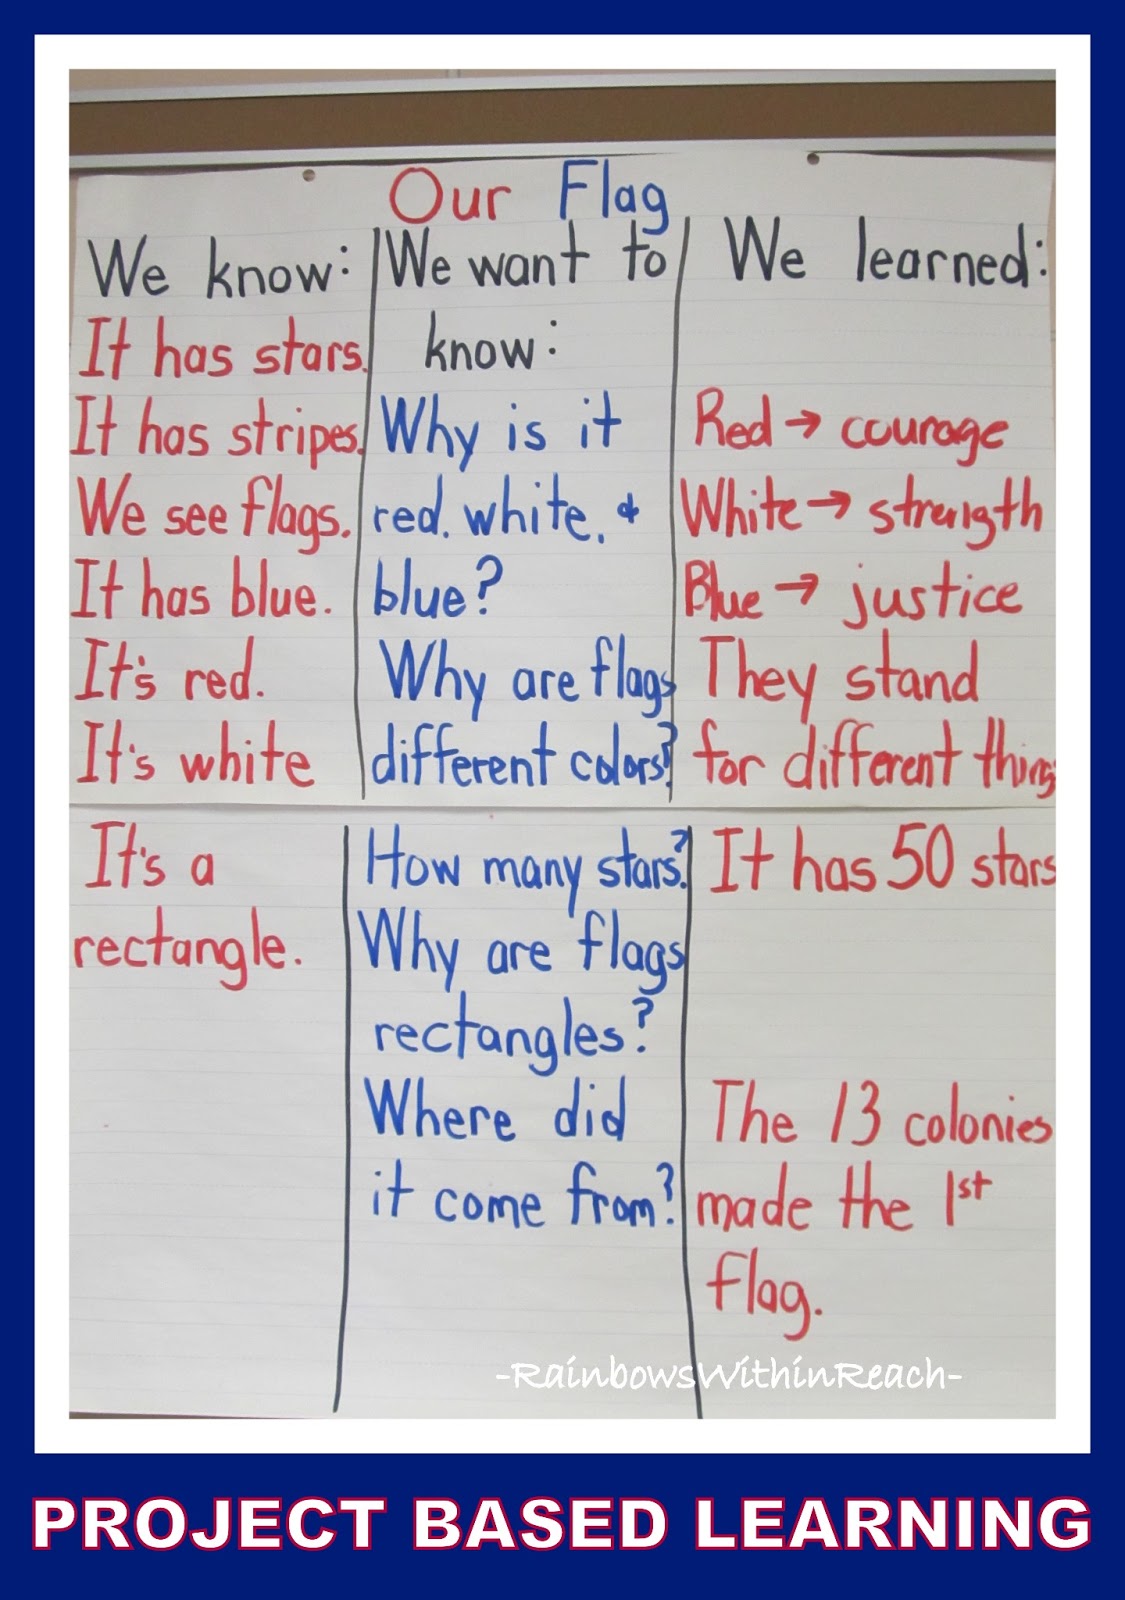 Our Flag
We know:
It has stars.
It has stripes.
We see flags.
It has blue.
It's red.
It's white
It's a
rectangle.
We want to
know:
Why is it
red, white, &
blue?
Why are flags
different colors?
How many stars?
Why are flags
rectangles?
Where did
it come from?
We learned:
Red → courage
White → strength
Blue → justice
They stand
for different things
It has 50 stars
The 13 colonies
made the 1st
flag.
-RainbowsWithinReach-
PROJECT BASED LEARNING